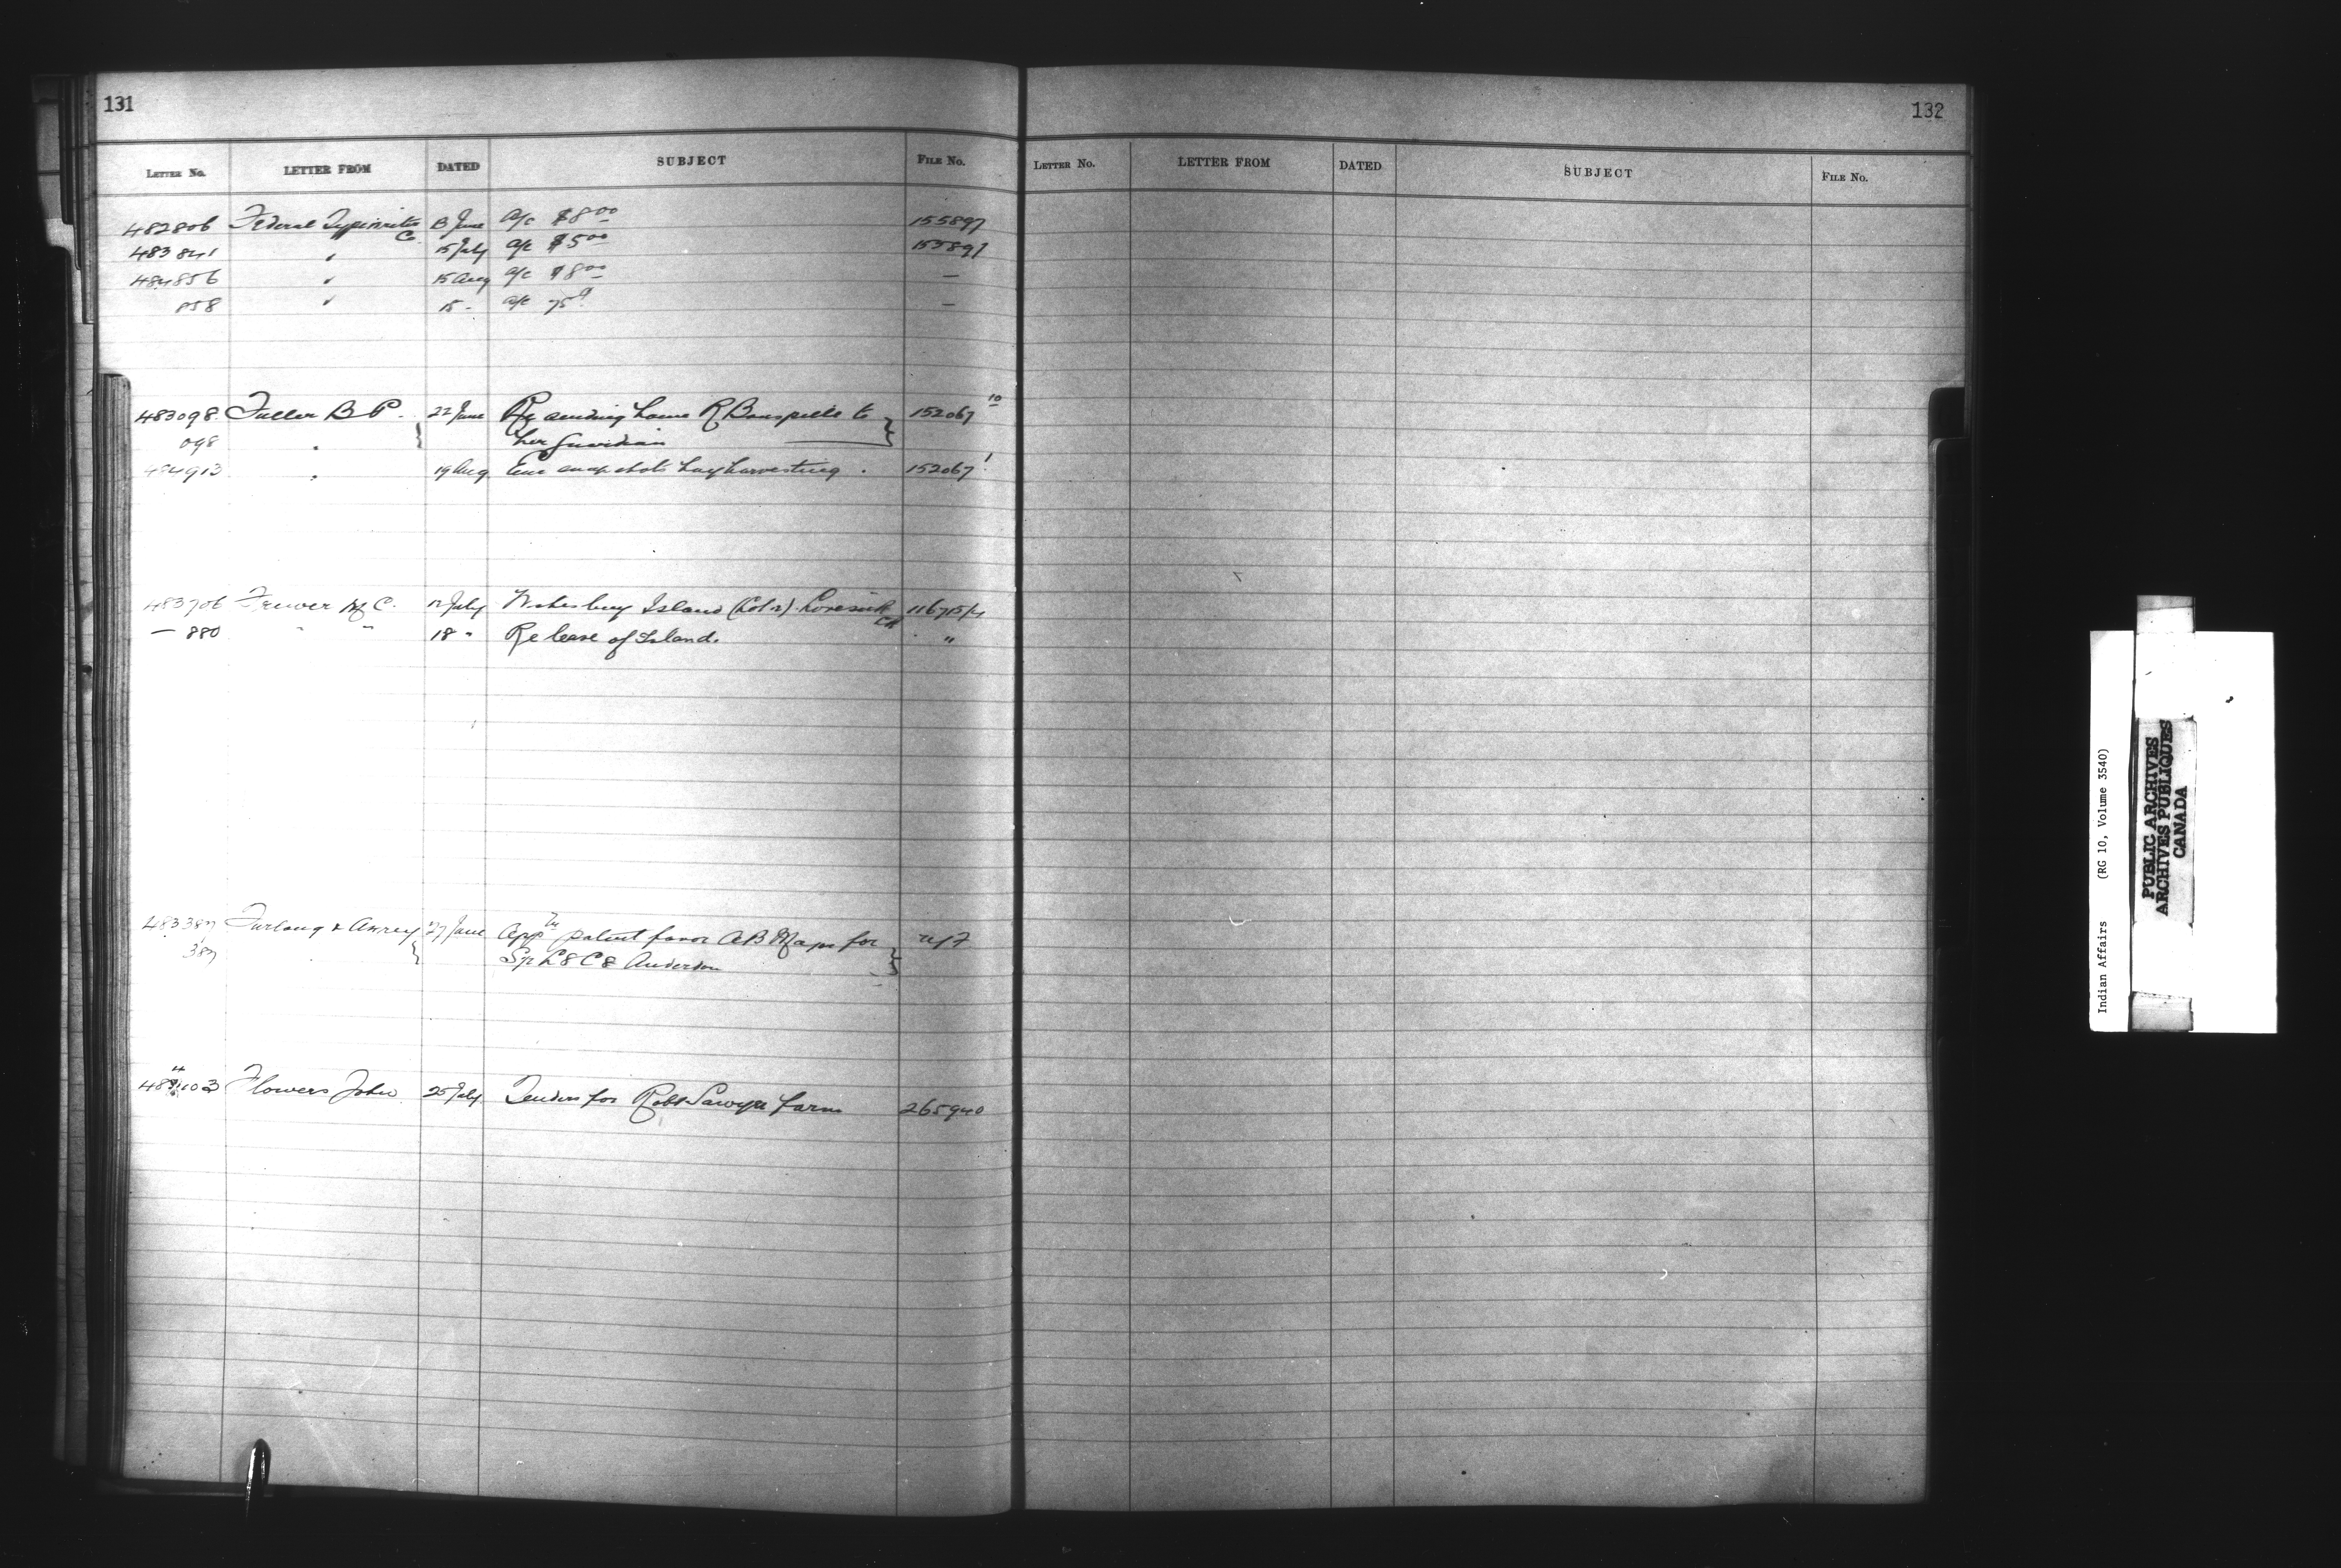 131
LETTER NO. LETTER FROM DATED SUBJECT FILE NO.
482806 Federal Typewriter Co. 13 June a/c $8 00 155897
483841 " 15 July a/c $5 00 155897
484856 " 15 Aug a/c $8 00 —
858 " 15 - a/c 75 —
483098 Fuller B P. 22 June Re sending home R to 152067 10
098 " her guardian
484913 " 19 Aug snapshots hay harvesting. 152067 1
483706 C. 12 July Island (Col r)
— 880 " " 18 " Release of Island. "
483387 Furlong & 27 June App patent favor A B for
387 Sp L8 C8 Anderson
103 Flowers John 25 July Tenders for Robt Sawyer farm 265940
132
LETTER NO. LETTER FROM DATED SUBJECT FILE NO.
Indian Affairs (RG 10, Volume 3540)
PUBLIC ARCHIVES
ARCHIVES PUBLIQUES
CANADA